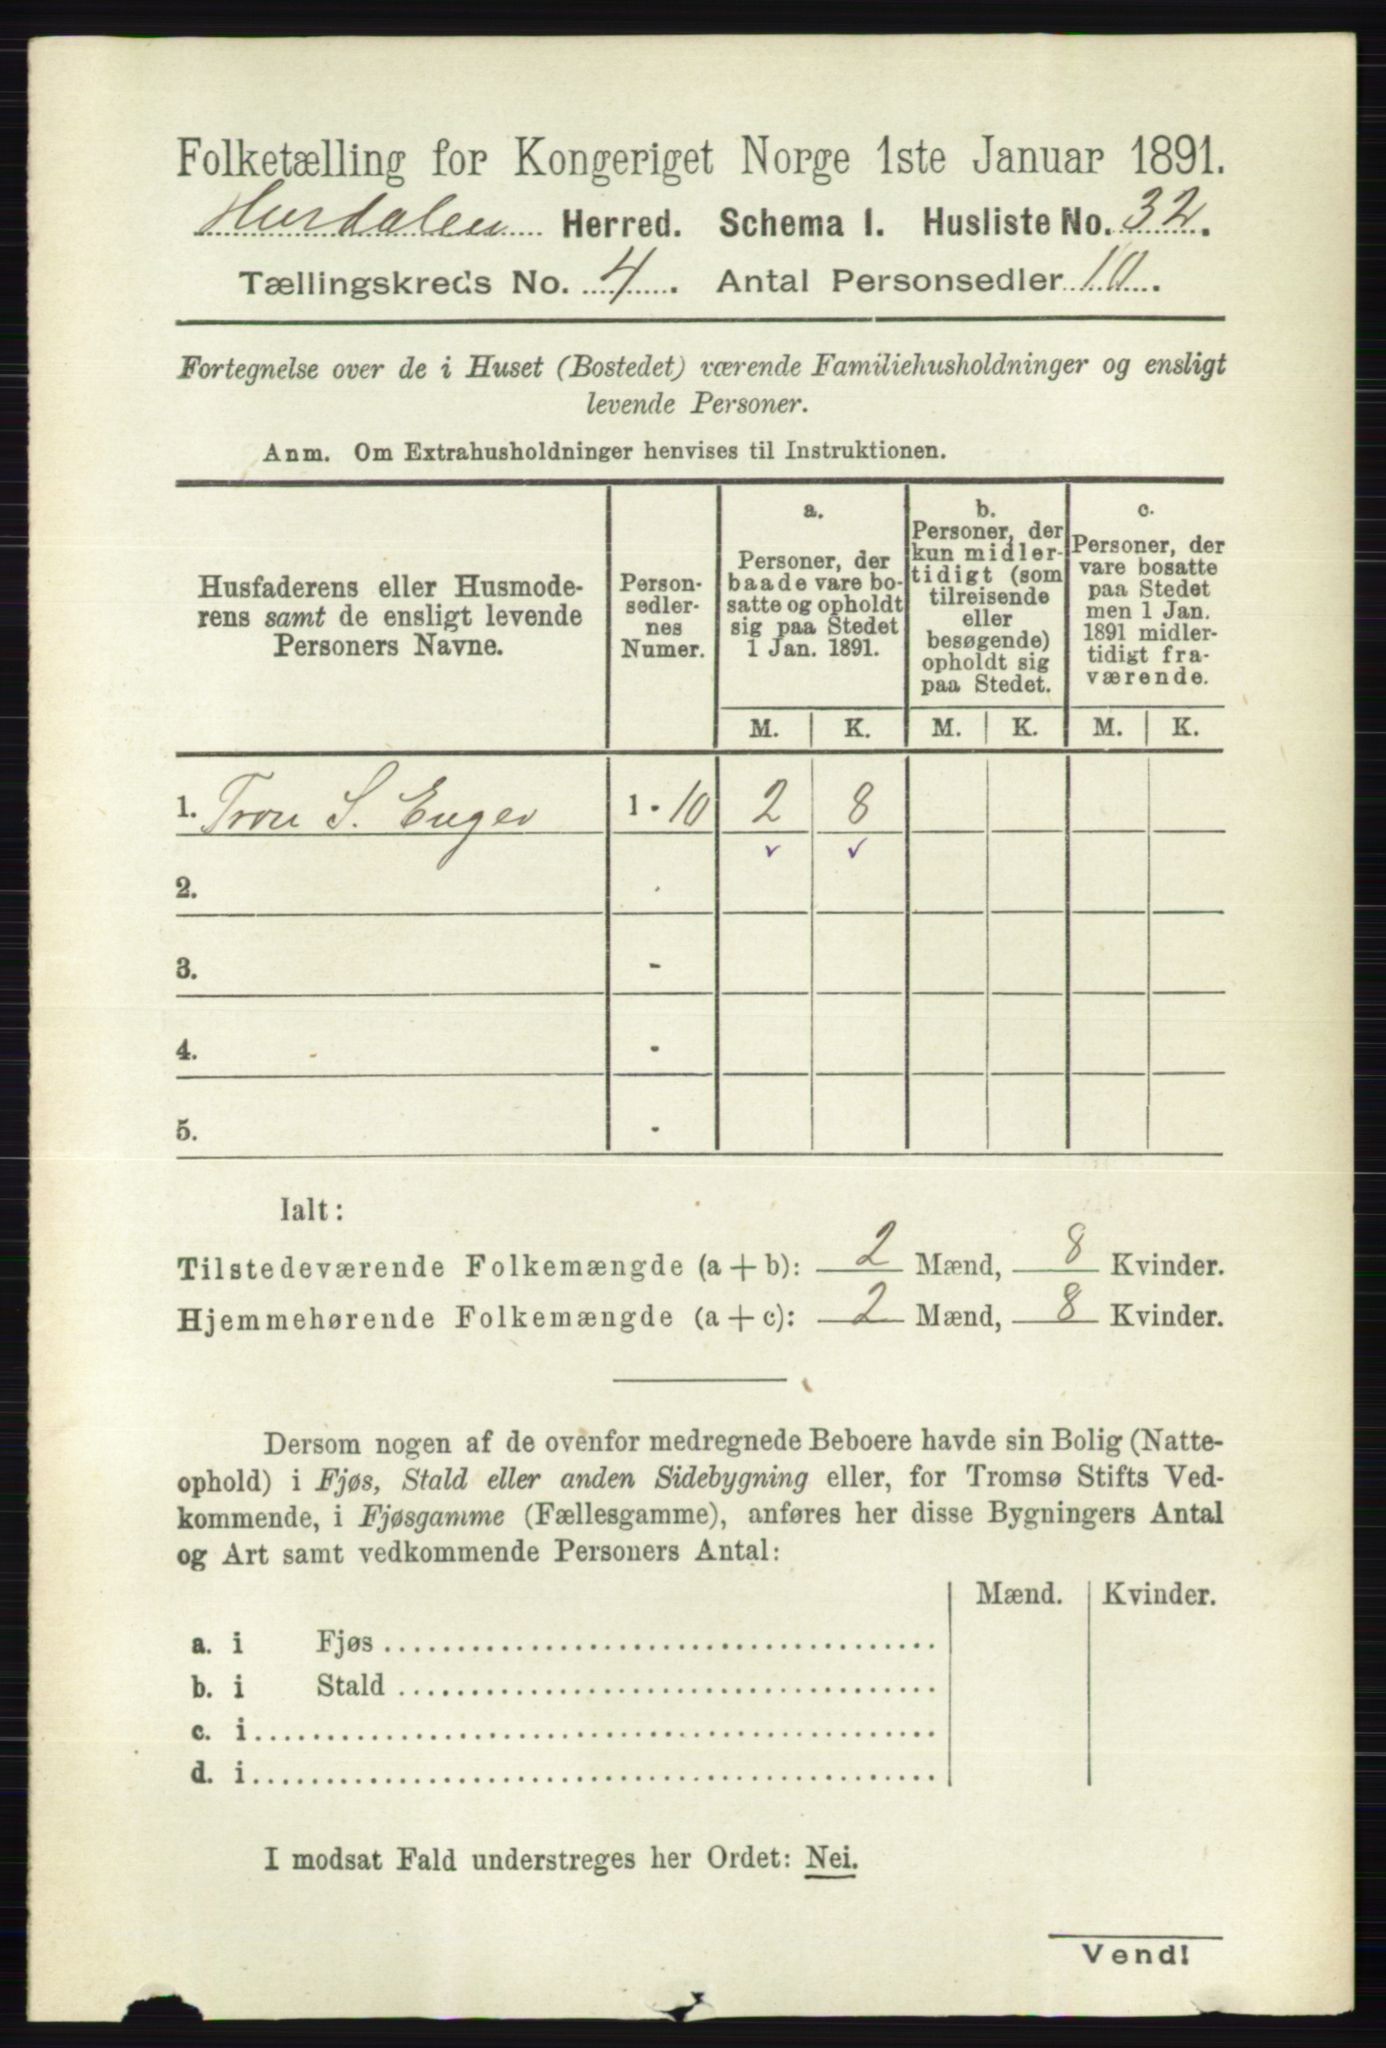 Folketælling for Kongeriget Norge 1ste Januar 1891.
Hurdalen Herred. Schema I. Husliste No. 32.
Tællingskreds No. 4. Antal Personsedler 10.
Fortegnelse over de i Huset (Bostedet) værende Familiehusholdninger og ensligt
levende Personer.
Anm. Om Extrahusholdninger henvises til Instruktionen.
Husfaderens eller Husmode-
rens samt de ensligt levende
Personers Navne.
Person-
sedler-
nes
Numer.
a.
Personer, der
baade vare bo-
satte og opholdt
sig paa Stedet
1 Jan. 1891.
b.
Personer, der
kun midler-
tidigt (som
tilreisende
eller
besøgende)
opholdt sig
paa Stedet.
c.
Personer, der
vare bosatte
paa Stedet
men 1 Jan.
1891 midler-
tidigt fra-
værende.
M. K. M. K. M. K.
1. Tron S. Enger 1 - 10 2 8
2.
3. -
4. -
5. -
Ialt:
Tilstedeværende Folkemængde (a + b): 2 Mænd, 8 Kvinder.
Hjemmehørende Folkemængde (a + c): 2 Mænd, 8 Kvinder.
Dersom nogen af de ovenfor medregnede Beboere havde sin Bolig (Natte-
ophold) i Fjøs, Stald eller anden Sidebygning eller, for Tromsø Stifts Ved-
kommende, i Fjøsgamme (Fællesgamme), anføres her disse Bygningers Antal
og Art samt vedkommende Personers Antal:
Mænd. Kvinder.
a. i Fjøs
b. i Stald
c. i
d. i
I modsat Fald understreges her Ordet: Nei.
Vend!